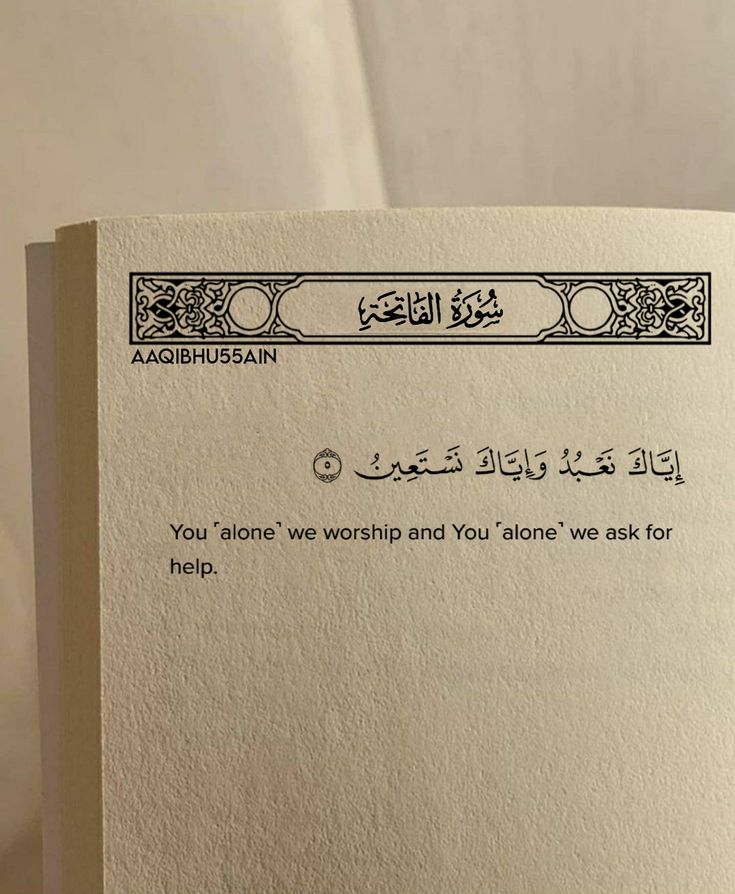 سُورَةُ الفَاتِحَةِ
AAQIBHU55AIN
إِيَّاكَ نَعْبُدُ وَإِيَّاكَ نَسْتَعِينُ ٥
You ˹alone˺ we worship and You ˹alone˺ we ask for
help.